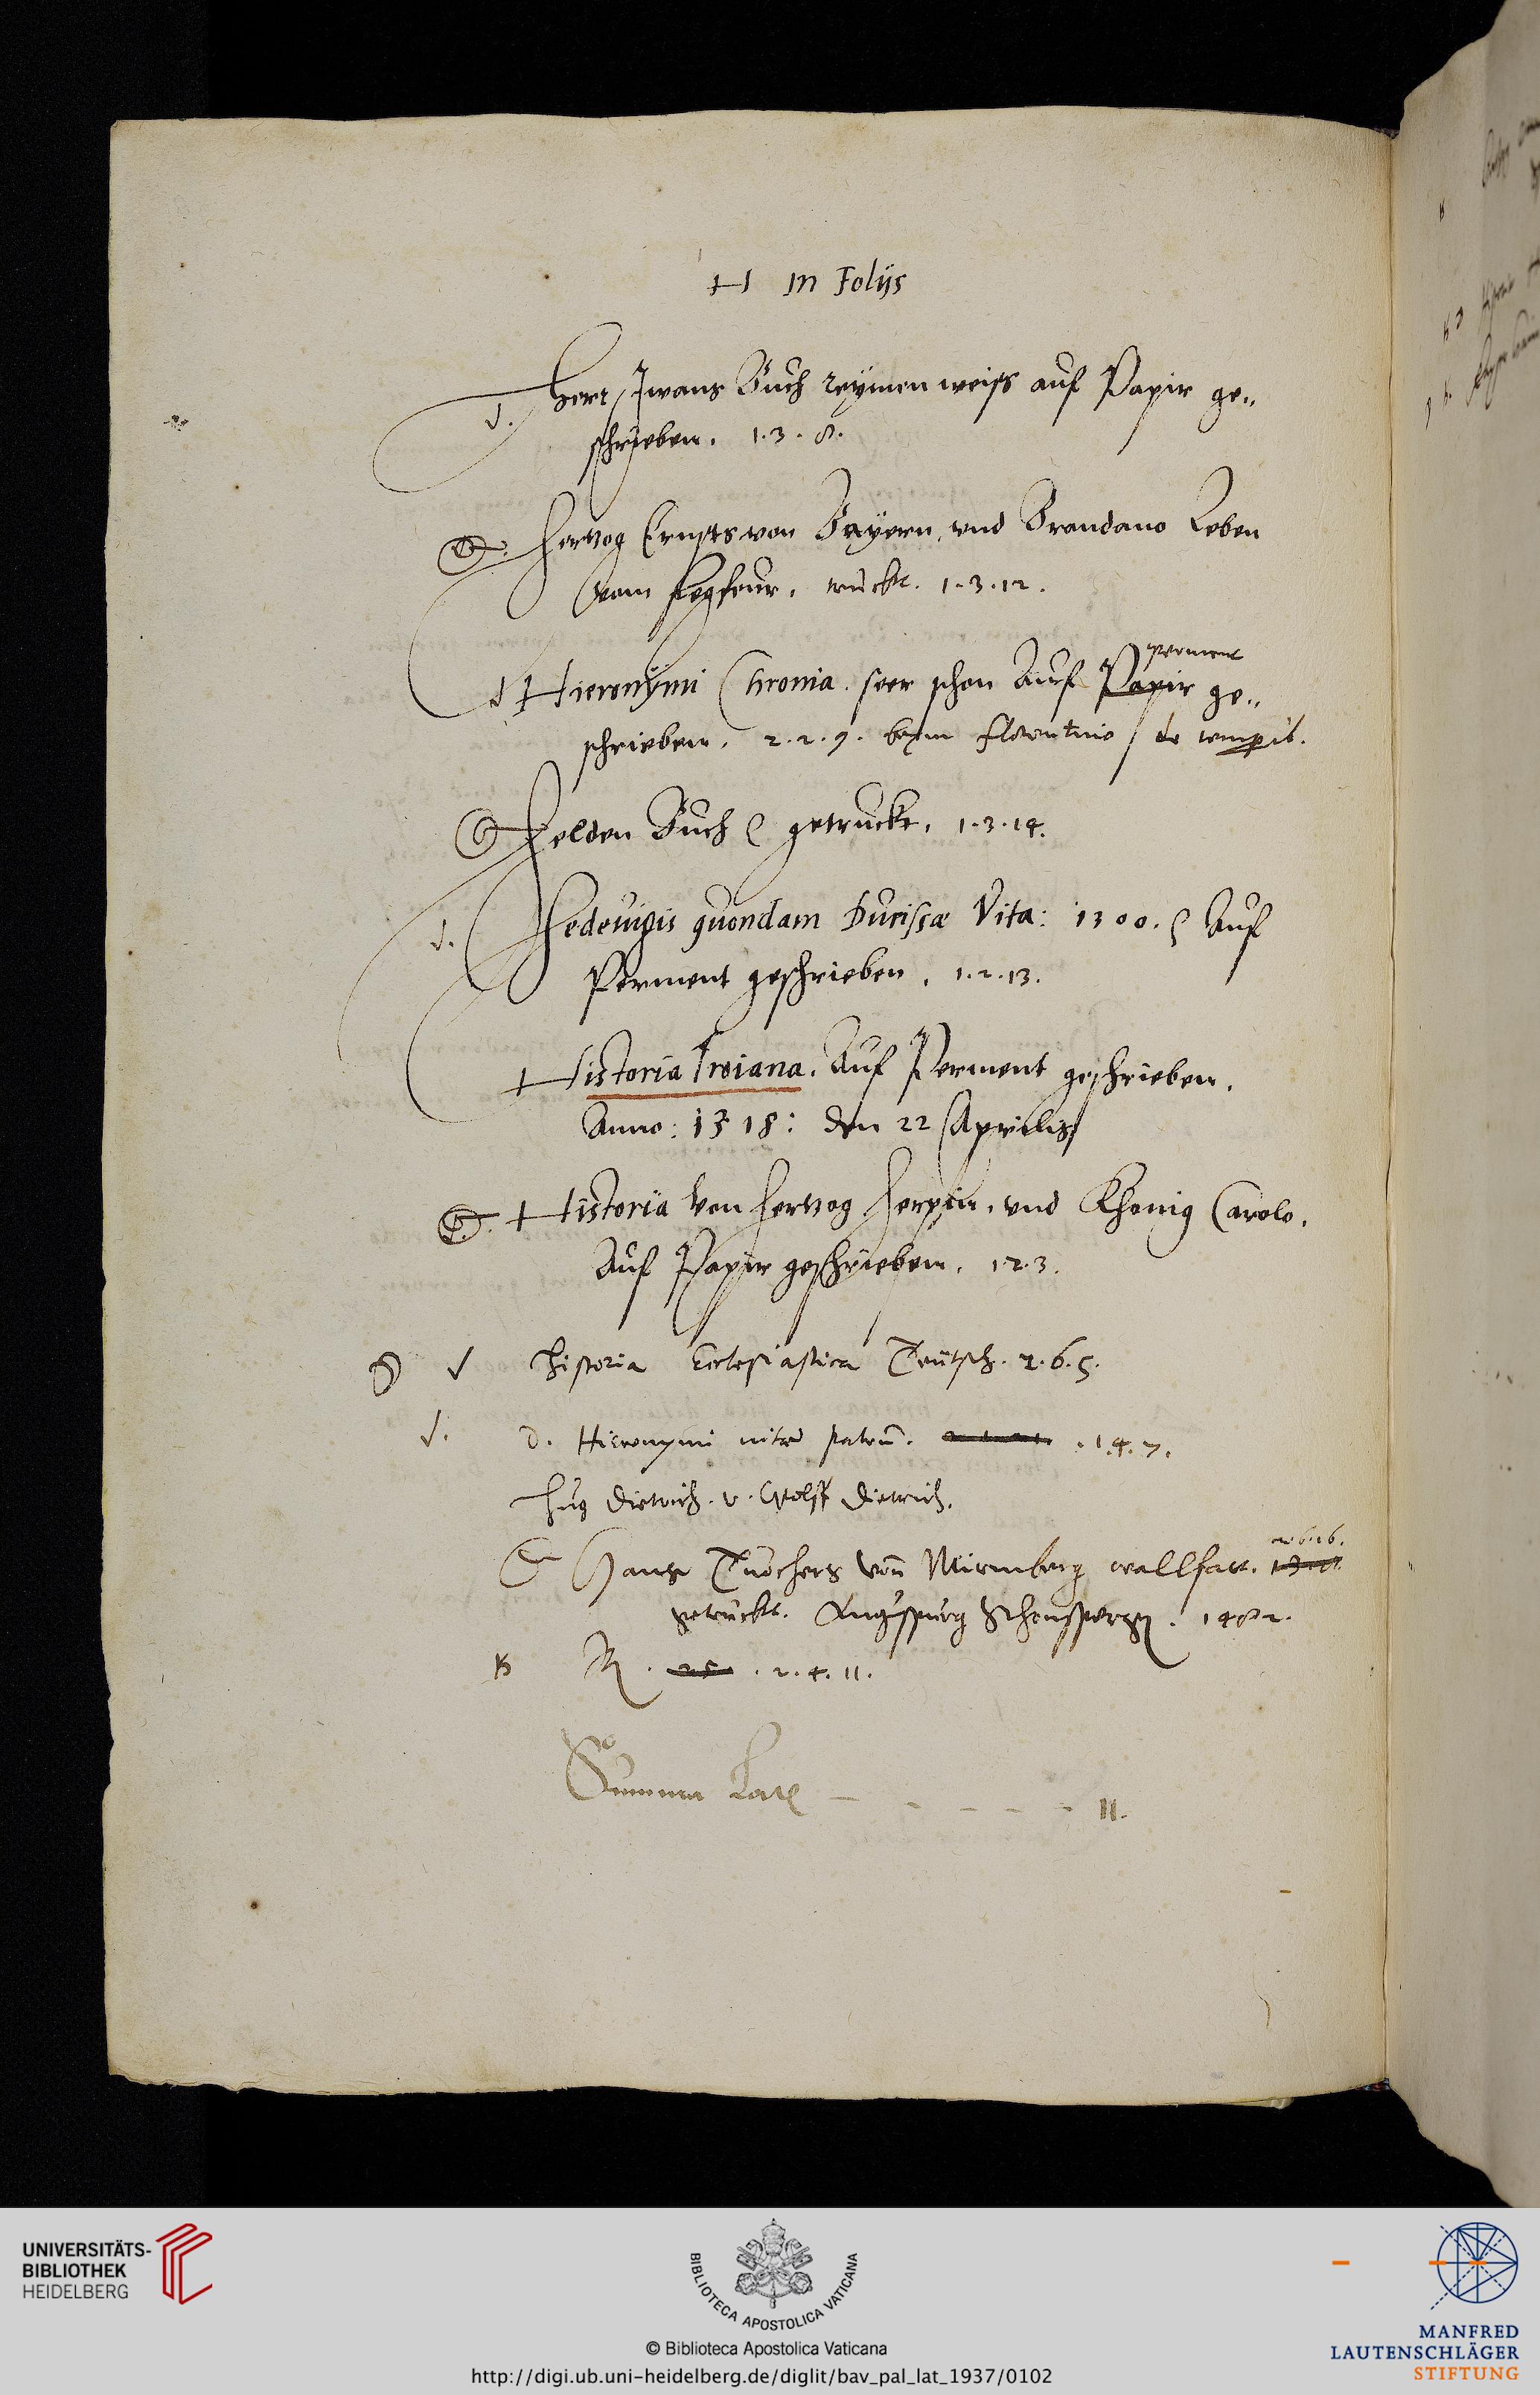 H in Folijs
Herr Iwans Buch reymen weiss auf Papir ge„
schrieben. 1. 3. 8.
Hertzog Ernsts von Bayern, und Brandano Leben
vom fegfeur. truckt. 1. 3. 12.
Hieronymi Chronia. seer schon Auf Papir perment ge„
schrieben. 2. 2. 9. beym florentino / de temporib.
Helden Buch getruckt. 1. 3. 14.
Hedewigis quondam Ducissæ Vita: 1300. Auf
Perment geschrieben. 1. 2. 13.
Historia Troiana. Auf Perment geschrieben.
Anno: 1318: den 22 Aprilis
Historia von Hertzog Herpin. und Khonig Carolo.
Auf Papir geschrieben. 1. 2. 3.
√ Historia Ecclesiastica Teutsch. 2. 6. 5.
√. D. Hieronymi vitæ patrũ. . 1. 4. 7.
Hug Dietrich. v. Wolff Dietrich.
Hans Tuochers von Nürmberg wallfart.
getruckt. Augspurg Schonsperger. 1482.
R. 25. 2. 4. 11.
Summa Lat. - - - - - 11.
UNIVERSITÄTS-
BIBLIOTHEK
HEIDELBERG
BIBLIOTECA APOSTOLICA VATICANA
© Biblioteca Apostolica Vaticana
http://digi.ub.uni-heidelberg.de/diglit/bav_pal_lat_1937/0102
MANFRED
LAUTENSCHLÄGER
STIFTUNG